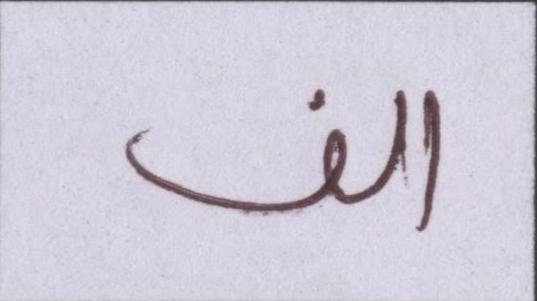 الف